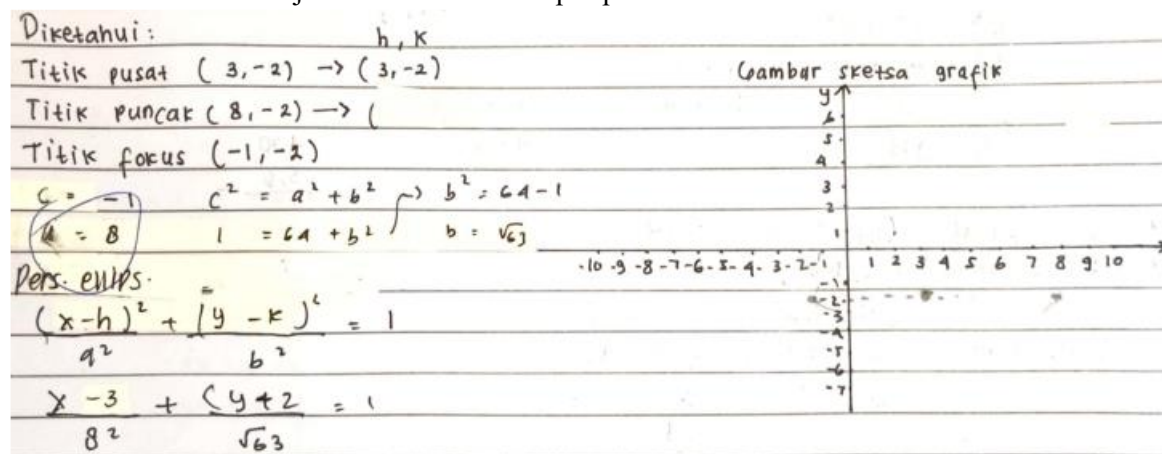 Diketahui:
h, k
Titik pusat (3,-2) -> (3,-2)
Titik puncak (8,-2) -> (
Titik fokus (-1,-2)
c = -1 c² = a² + b² b² = 64-1
= 8 1 = 64 + b² b = √63
Pers. ellips.
(x-h)² + (y - k)² = 1
a² b²
x - 3 + (y+2 = 1
8² √63
Gambar sketsa grafik
y
6
5
4
3
2
1
-10 -9 -8 -7 -6 -5 -4 -3 -2 -1 1 2 3 4 5 6 7 8 9 10
-1
-2
-3
-4
-5
-6
-7